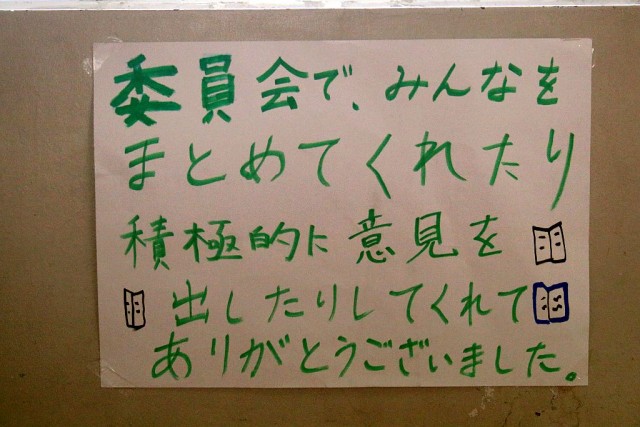 委員会で、みんなを
まとめてくれたり
積極的に意見を
出したりしてくれて
ありがとうございました。